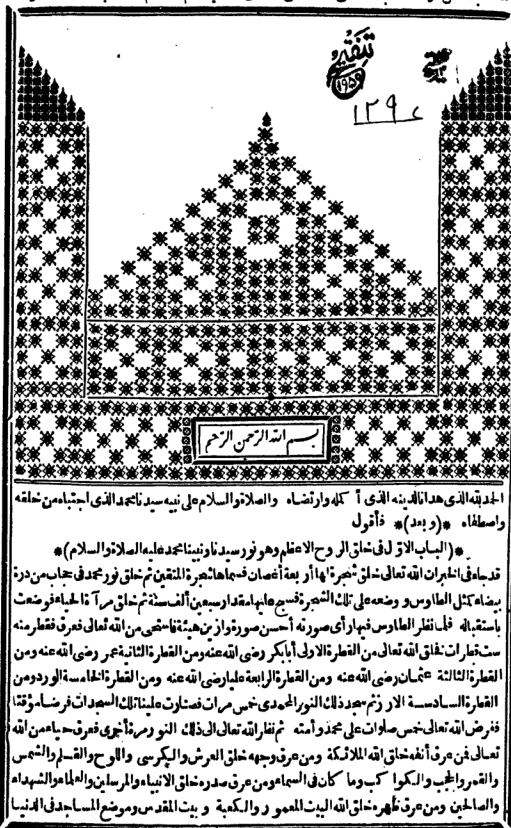 تنقيح
١٩٥٩
١٢٩
بسم الله الرحمن الرحيم
الحمد لله الذى هدانا لدينه الذى أكمله وارتضاه والصلاة والسلام على نبيه سيدنا محمد الذى اجتباه من خلقه
واصطفاه *(وبعد)* فأقول
*(الباب الاول فى خلق الروح الاعظم وهو نور سيدنا ونبينا محمد عليه الصلاة والسلام)*
قد جاء فى الخبر ان الله تعالى خلق شجرة لها أربعة أغصان فسماها شجرة المتقين ثم خلق نور محمد فى حجاب من درة
بيضاء كمثل الطاوس ووضعه على تلك الشجرة فسبح عليها مقدار سبعين ألف سنة ثم خلق مرآة الحياء فوضعت
باستقباله فلما نظر الطاوس فيها رأى صورته أحسن صورة وأزين هيئة فاستحى من الله تعالى فعرق فقطر منه
ست قطرات فخلق الله تعالى من القطرة الاولى أبا بكر رضى الله عنه ومن القطرة الثانية عمر رضى الله عنه ومن
القطرة الثالثة عثمان رضى الله عنه ومن القطرة الرابعة عليا رضى الله عنه ومن القطرة الخامسة الورد ومن
القطرة السادسة الارز ثم سجد ذلك النور المحمدى خمس مرات فصارت علينا تلك السجدات فرضا مؤقتا
ففرض الله تعالى خمس صلوات على محمد وأمته ثم نظر الله تعالى الى ذلك النور مرة أخرى فعرق حياء من الله
تعالى فمن عرق أنفه خلق الله الملائكة ومن عرق وجهه خلق العرش والكرسى واللوح والقلم والشمس
والقمر والحجب والكواكب وما كان فى السماء ومن عرق صدره خلق الانبياء والمرسلين والعلماء والشهداء
والصالحين ومن عرق ظهره خلق الله البيت المعمور والكعبة وبيت المقدس وموضع المساجد فى الدنيا